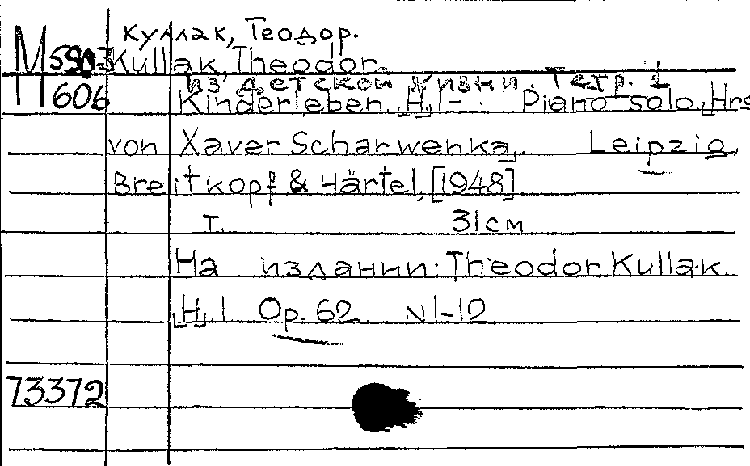 Куллак, Теодор.
М 5903 Kullak, Theodor.
Из детской жизни. Тетр. 1
606 Kinderleben, H. 1-. Piano solo, Hrs
von Xaver Scharwenka, Leipzig,
Breitkopf & Härtel, [1948]
т. 31 см
На издании: Theodor Kullak.
H. 1 Op. 62 N 1-12
73372